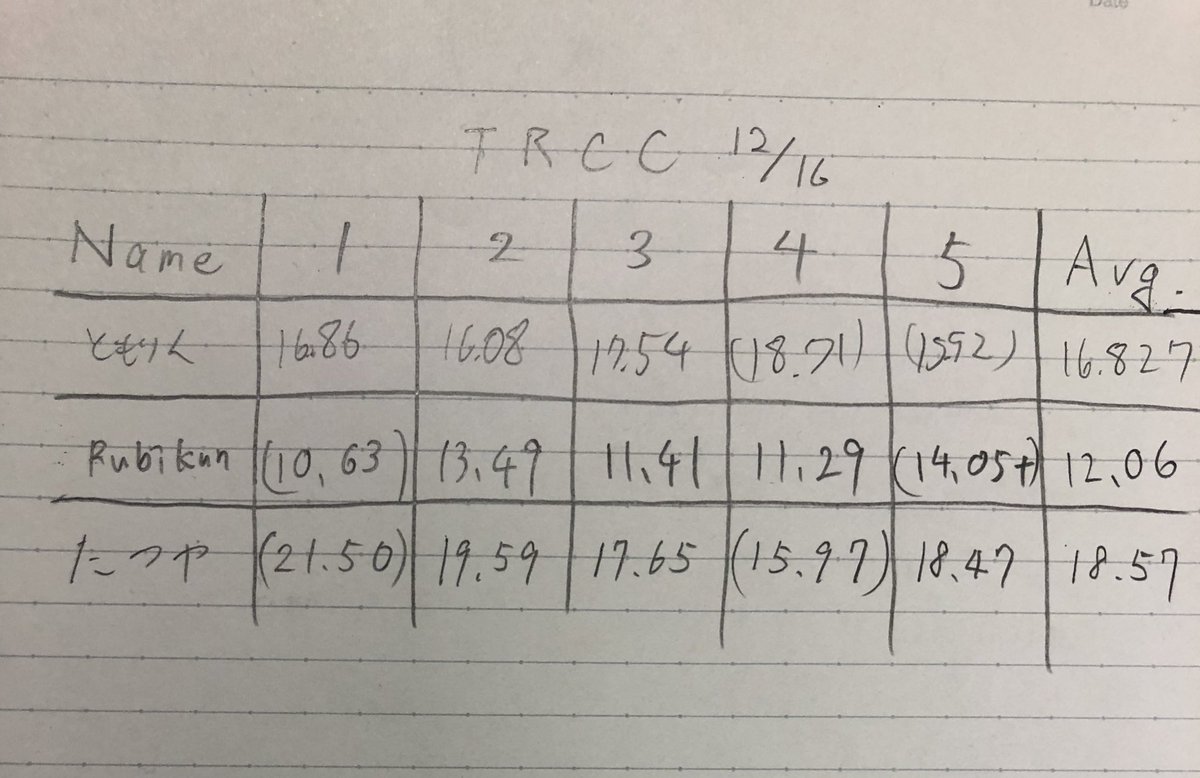 Date
TRCC 12/16
Name 1 2 3 4 5 Avg.
ともりん 16.86 16.08 17.54 (18.71) (15.92) 16.827
Rubikun (10.63) 13.49 11.41 11.29 (14.05+) 12.06
たつや (21.50) 19.59 17.65 (15.97) 18.47 18.57